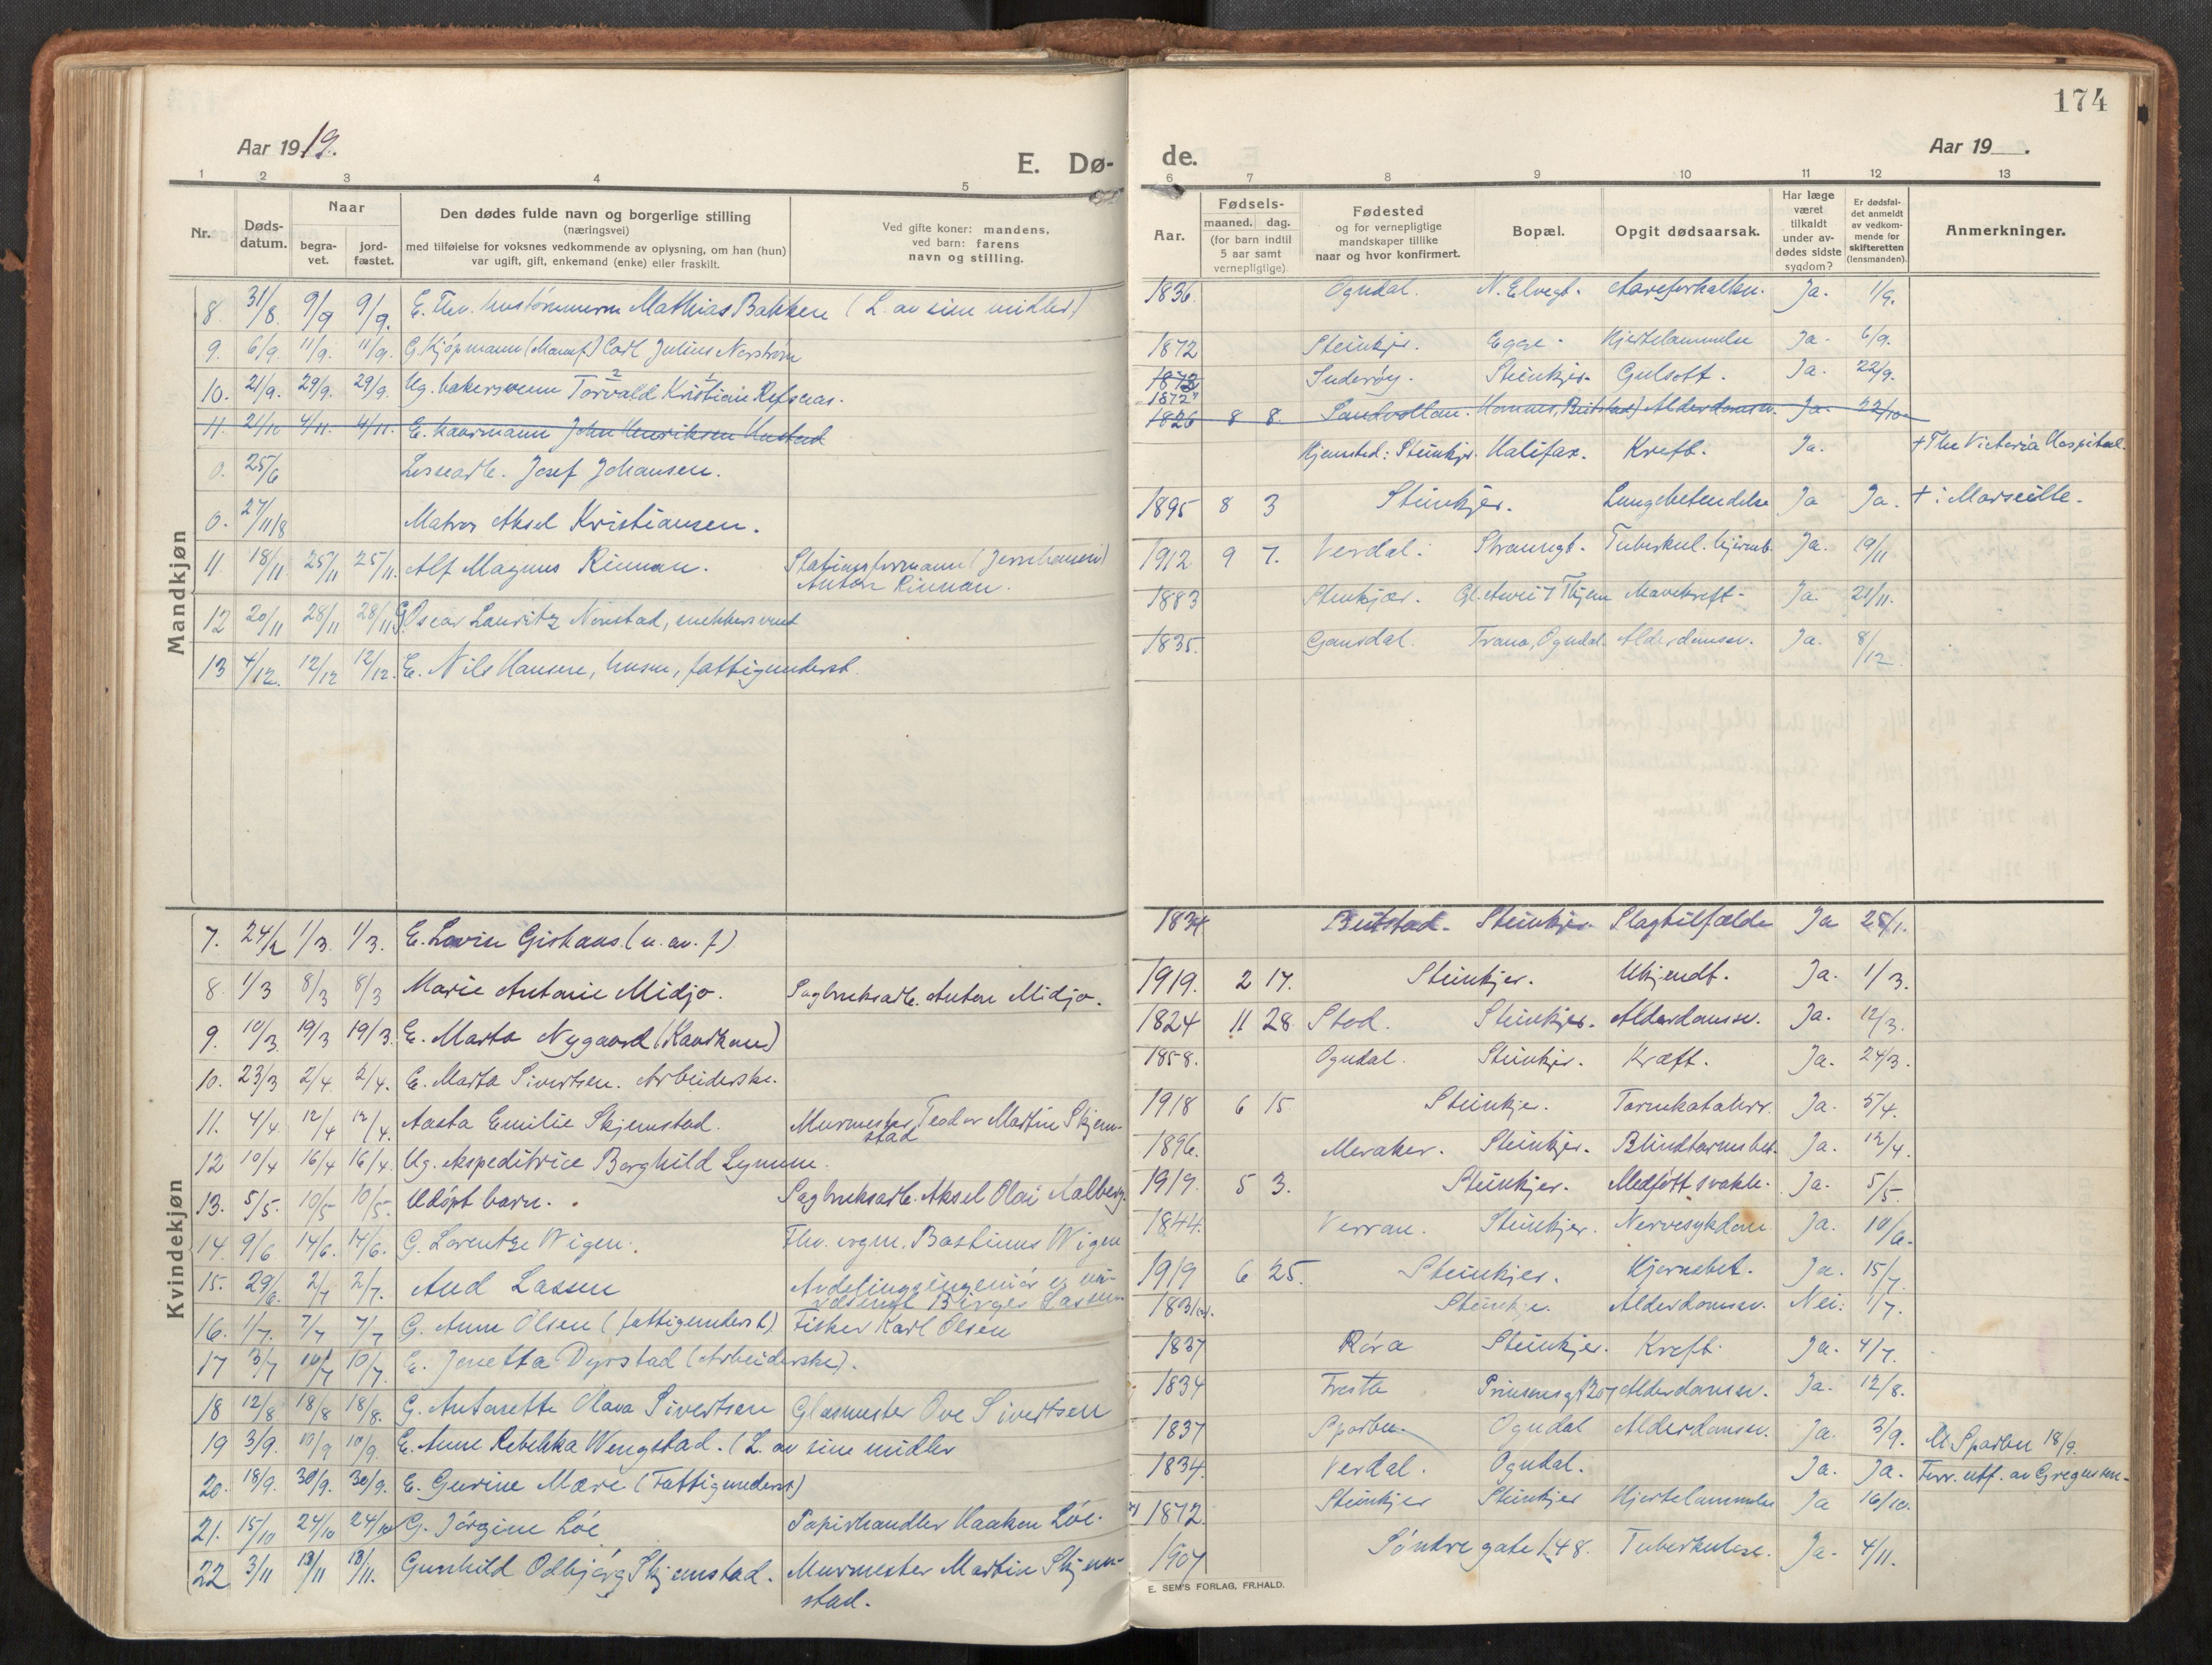 174
Aar 1919.
E. Dø-
de.
Aar 19 .
1 2 3 4 5 6 7 8 9 10 11 12 13
Nr.
Døds-
datum.
Naar
begra-
vet.
jord-
fæstet.
Den dødes fulde navn og borgerlige stilling
(næringsvei)
med tilføielse for voksnes vedkommende av oplysning, om han (hun)
var ugift, gift, enkemand (enke) eller fraskilt.
Ved gifte koner: mandens,
ved barn: farens
navn og stilling.
Aar.
Fødsels-
maaned. dag.
(for barn indtil
5 aar samt
vernepligtige)
Fødested
og for vernepligtige
mandskaper tillike
naar og hvor konfirmert.
Bopæl.
Opgit dødsaarsak.
Har læge
været
tilkaldt
under av-
dødes sidste
sygdom?
Er dødsfal-
det anmeldt
av vedkom-
mende for
skifteretten
(lensmanden).
Anmerkninger.
Mandkjøn
8. 31/8. 9/9 9/9. E. Mathias Bakken (L. av sine midler) 1836. Ogndal. N. Elvegt. Aareforkalkn. Ja. 1/9.
9. 6/9. 11/9. 11/9. G. Kjøpmann (Manuf.) Carl Julius Norstrøm 1872 Steinkjer. Egge. Hjertelammelse Ja. 6/9.
10. 21/9. 29/9. 29/9. Ug. bakersvenn Torvald Kristian Refsnas. 1872 1872 Inderøy. Steinkjer. Gulsott. Ja. 22/9.
11. 21/10 4/11. 4/11. E. kaarmann John Henriksen Hustad 1826 8 8. Sandvollan. Alderdomssv. Ja. 22/10
0. 25/6 Lossearb. Josef Johansen. Hjemsted: Steinkjer. Halifax. Kreft. Ja. + The Victoria Hospital.
0. 27/11/18 Matros Aksel Kristiansen. 1895 8 3 Steinkjer. Lungebetendelse Ja Ja. + i Marseille.
11 18/11. 25/11 25/11. Alf Magnus Rinnan. Stationsformann (Jernbanen)
Anton Rinnan. 1912 9 7. Verdal. Strandgt. Tuberkul. hjerneb. Ja. 19/11
12 20/11 28/11 28/11 G. Oscar Lauritz Norstad, snekkersvend 1883 Stenkjær. Mavekreft. Ja. 21/11.
13 4/12. 12/12 12/12. E. Nils Hansen, husm, fattigunderst. 1835. Trana, Ogndal. Alderdomssv. Ja. 8/12
Kvindekjøn
7. 24/2 1/3. 1/3. E. Lovise Gishaus (u. av. f) 1834 Beitstad. Steinkjer. Slagtilfælde Ja 25/1.
8. 1/3 8/3 8/3 Marie Antonie Midjo. Sagbruksarb. Anton Midjo. 1919. 2 17. Steinkjer. Ukjendt. Ja. 1/3.
9. 10/3. 19/3 19/3. E. Marta Nygaard (Kaarkone) 1824 11 28 Stod. Steinkjer. Alderdomssv. Ja. 12/3.
10. 23/3 2/4. 2/4. E. Marta Sivertsen. Arbeiderske. 1858. Ogndal. Steinkjer. Kræft. Ja. 24/3.
11. 4/4. 12/4 12/4. Aasta Emilie Skjemstad. Murmester Teodor Martin Skjem-
stad 1918 6 15 Steinkje. Tarmkatahrr. Ja. 5/4.
12 10/4 16/4 16/4. Ug. ekspeditrice Borghild Lynum. 1896. Meraker. Steinkjer. Blindtarmsbet. Ja. 12/4.
13. 5/5. 10/5 10/5. Udøpt barn. Sagbruksarb. Aksel Olai Aalberg. 1919. 5 3. Steinkjer. Medfött svakh. Ja. 5/5.
14. 9/6 14/6. 14/6. G. Lorentze Wigen. Fhv. vogm. Bastinus Wigen 1844. Verran. Steinkjer. Nervesykdom Ja. 10/6.
15. 29/6. 2/7 2/7. Aud Lassen Avdelingsingeniør
Birger Lassen 1919 6 25. Steinkjer. Hjernebet. Ja. 15/7
16. 1/7. 7/7 7/7 G. Anne Olsen (fattigunderst.) Fisker Karl Olsen 1831 Steinkje. Alderdomssv. Nei. 1/7.
17 3/7 10/7 10/7. E. Jenetta Dyrstad (Arbeiderske). 1837 Røra Steinkjer. Kreft. Ja. 4/7.
18 12/8 18/8 18/8. G. Antonette Olava Sivertsen Glasmester Ove Sivertsen 1834 Frosta Prinsensgt Alderdomssv. Ja. 12/8.
19 3/9. 10/9 10/9. E. Anne Rebekka Wengstad. (L. av sine midler 1837 Sparbu. Ogndal Alderdomssv. Ja. 3/9. M. Sparbu 18/9.
20. 18/9. 30/9. 30/9. E. Gurine Mære (Fattigunderst) 1834. Verdal. Ogndal. Ja. Ja. Forr. utf. av Gregersen.
21. 15/10 24/10 24/10 G. Jörgine Löe Papirhandler Haakon Löe. 1872. Steinkjer Steinkjer Hjertelammelse Ja 16/10.
22 3/11 13/11 13/11. Gunhild Odbjørg Skjemstad. Murmester Martin Skjem-
stad. 1907 Söndre gate 148. Tuberkulose. Ja. 4/11.
E. SEM'S FORLAG, FR.HALD.